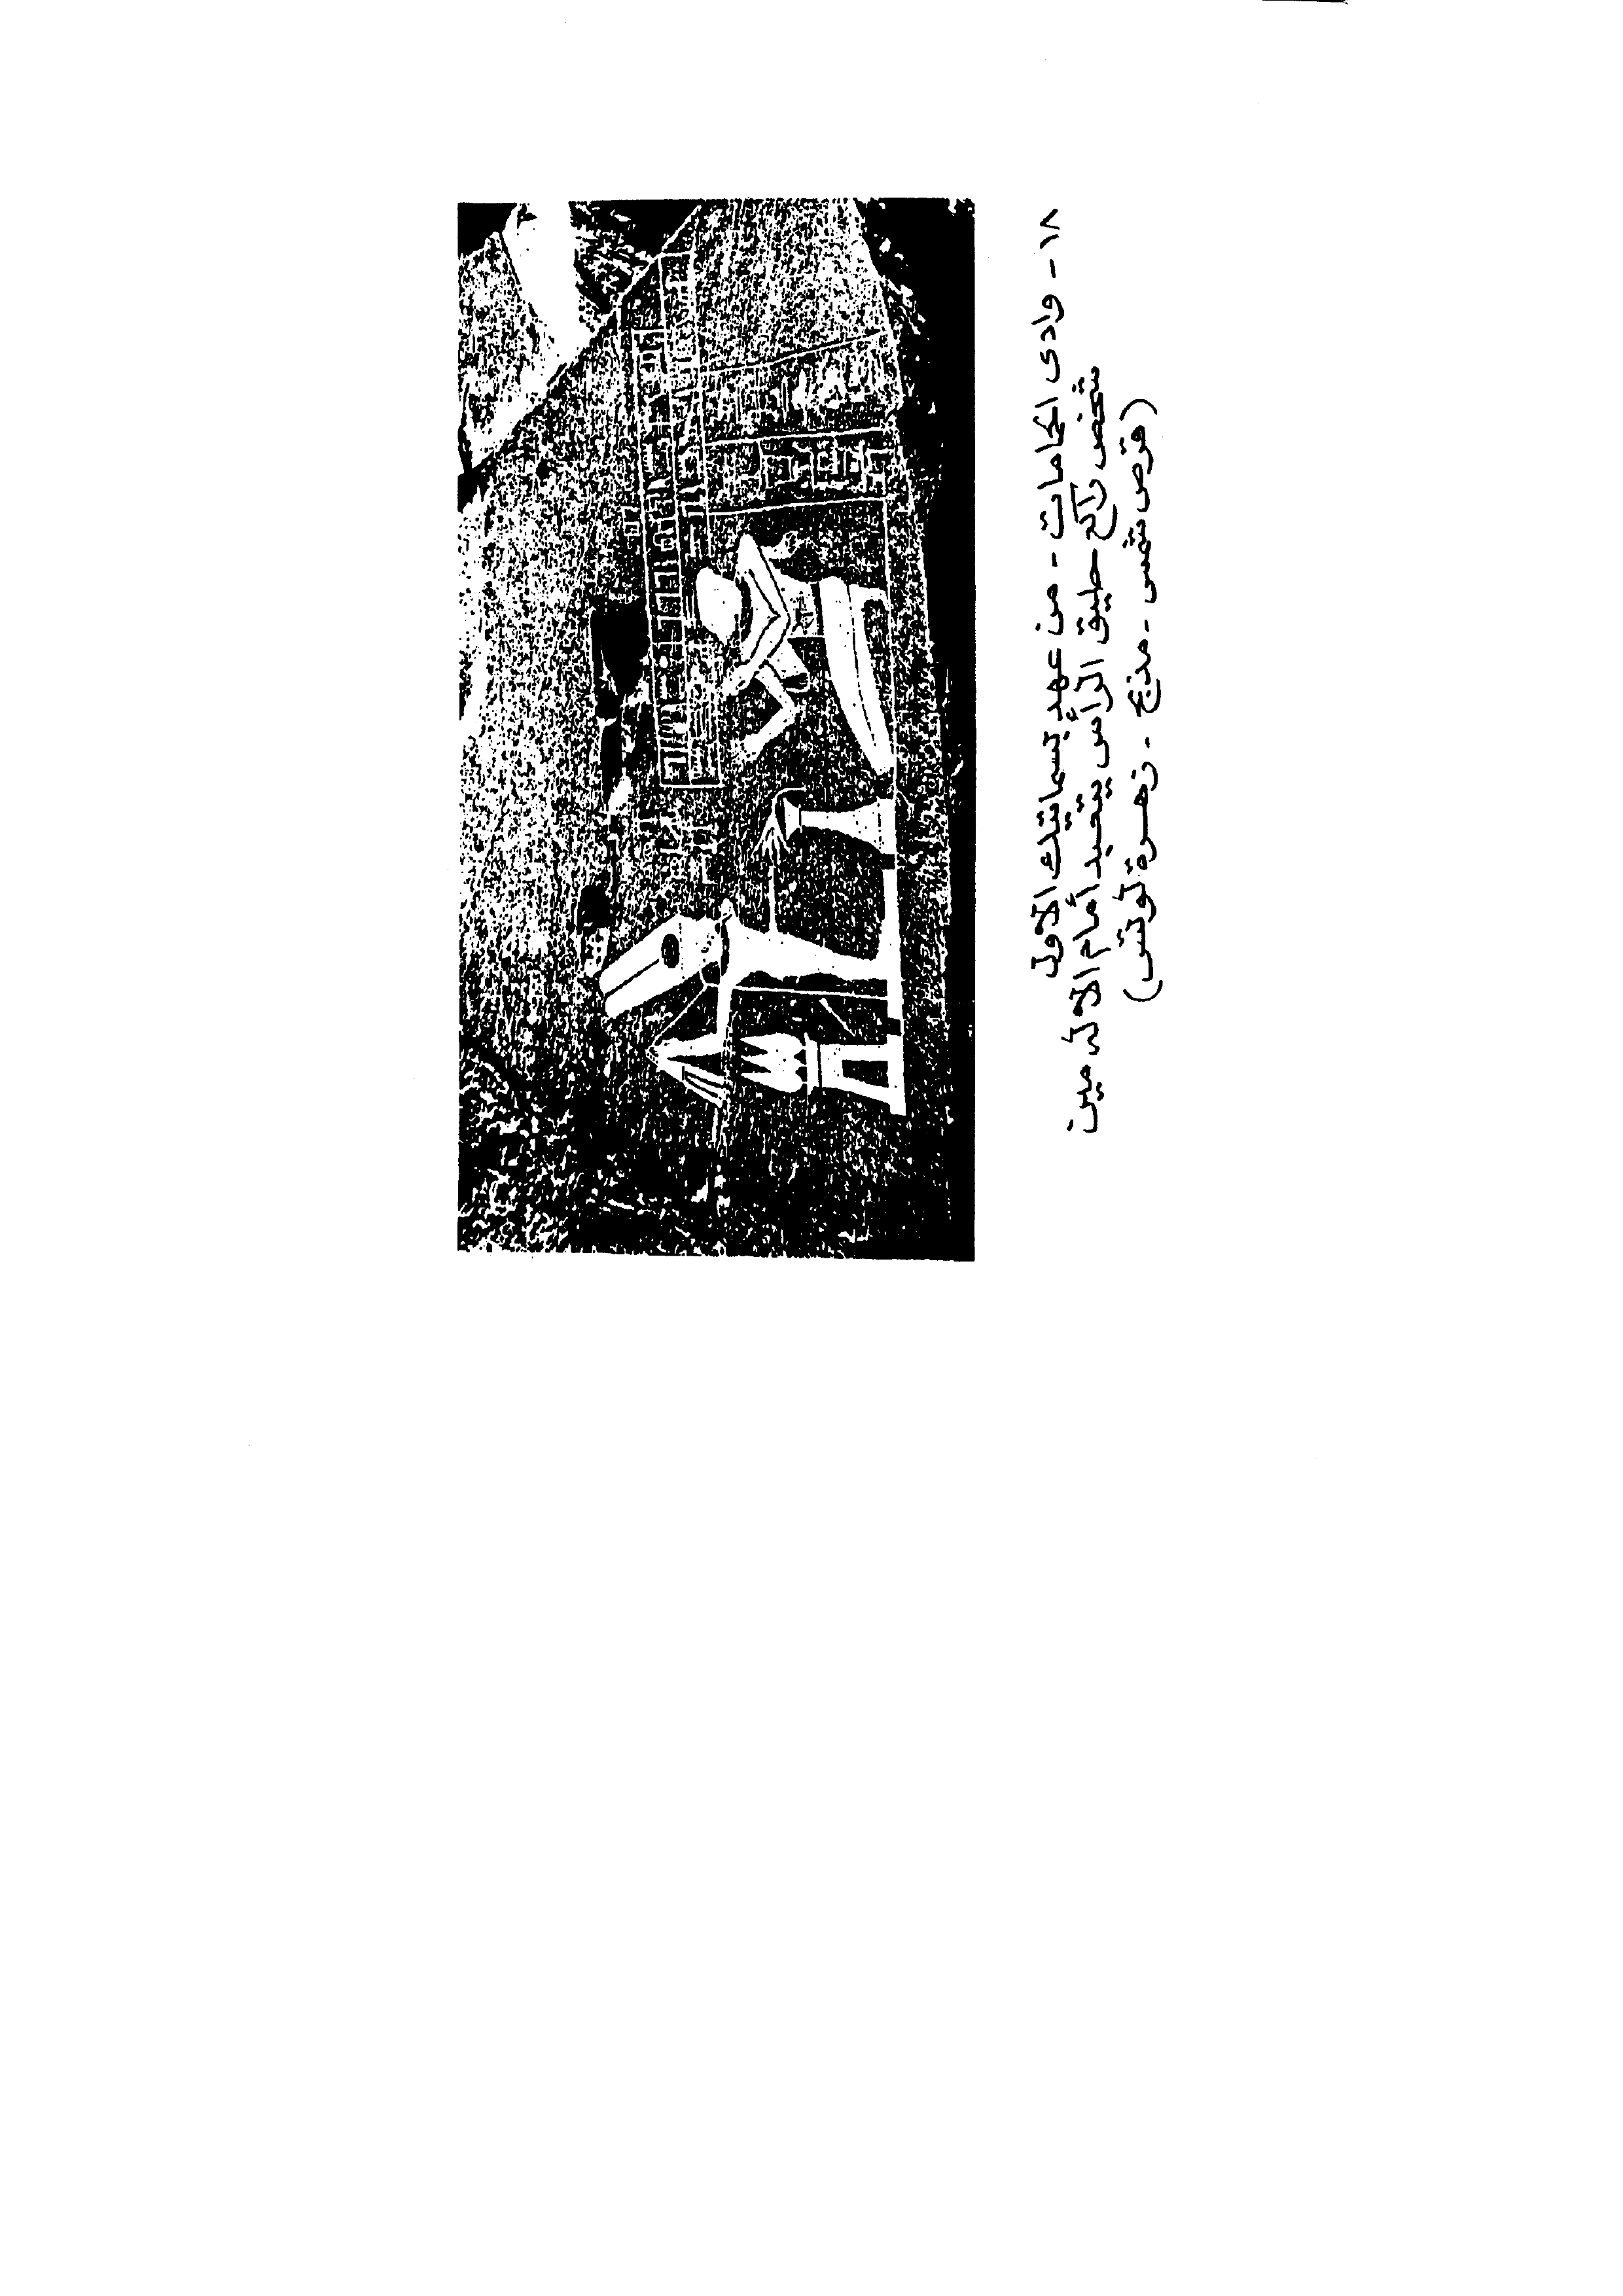 ١٨ - وادى الحمامات - من عهد بسماتيك الاول
شخص راكع حليق الرأس يتعبد أمام الاله مين
(قرص شمس - مذبح - زهرة لوتس)